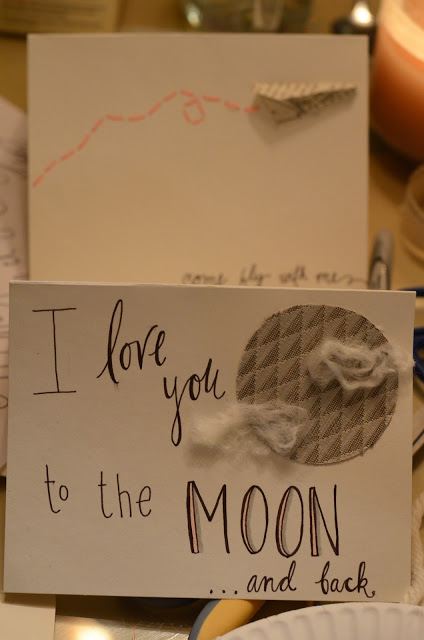 come fly with me
I love
you
to the MOON
...and back.